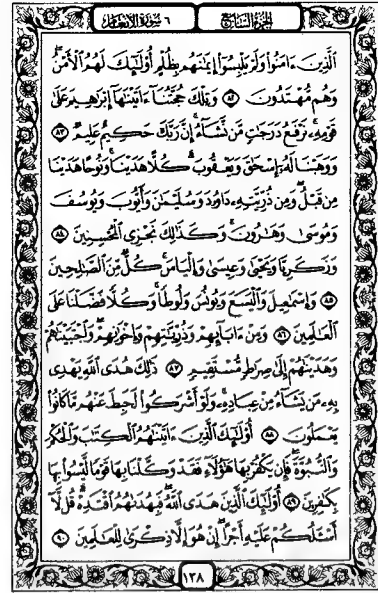 الجزء السابع ٦ سورة الأنعام
الَّذِينَ ءَامَنُوا وَلَمْ يَلْبِسُوا إِيمَـٰنَهُم بِظُلْمٍ أُولَـٰئِكَ لَهُمُ الْأَمْنُ
وَهُم مُّهْتَدُونَ ٨٢ وَتِلْكَ حُجَّتُنَا ءَاتَيْنَـٰهَا إِبْرَٰهِيمَ عَلَىٰ
قَوْمِهِ نَرْفَعُ دَرَجَـٰتٍ مَّن نَّشَاءُ إِنَّ رَبَّكَ حَكِيمٌ عَلِيمٌ ٨٣
وَوَهَبْنَا لَهُ إِسْحَـٰقَ وَيَعْقُوبَ كُلًّا هَدَيْنَا وَنُوحًا هَدَيْنَا
مِن قَبْلُ وَمِن ذُرِّيَّتِهِ دَاوُدَ وَسُلَيْمَـٰنَ وَأَيُّوبَ وَيُوسُفَ
وَمُوسَىٰ وَهَـٰرُونَ وَكَذَٰلِكَ نَجْزِي الْمُحْسِنِينَ ٨٤
وَزَكَرِيَّا وَيَحْيَىٰ وَعِيسَىٰ وَإِلْيَاسَ كُلٌّ مِّنَ الصَّـٰلِحِينَ
٨٥ وَإِسْمَـٰعِيلَ وَالْيَسَعَ وَيُونُسَ وَلُوطًا وَكُلًّا فَضَّلْنَا عَلَى
الْعَـٰلَمِينَ ٨٦ وَمِنْ ءَابَائِهِمْ وَذُرِّيَّـٰتِهِمْ وَإِخْوَٰنِهِمْ وَاجْتَبَيْنَـٰهُمْ
وَهَدَيْنَـٰهُمْ إِلَىٰ صِرَٰطٍ مُّسْتَقِيمٍ ٨٧ ذَٰلِكَ هُدَى اللَّهِ يَهْدِي
بِهِ مَن يَشَاءُ مِنْ عِبَادِهِ وَلَوْ أَشْرَكُوا لَحَبِطَ عَنْهُم مَّا كَانُوا
يَعْمَلُونَ ٨٨ أُولَـٰئِكَ الَّذِينَ ءَاتَيْنَـٰهُمُ الْكِتَـٰبَ وَالْحُكْمَ
وَالنُّبُوَّةَ فَإِن يَكْفُرْ بِهَا هَـٰؤُلَاءِ فَقَدْ وَكَّلْنَا بِهَا قَوْمًا لَّيْسُوا بِهَا
بِكَـٰفِرِينَ ٨٩ أُولَـٰئِكَ الَّذِينَ هَدَى اللَّهُ فَبِهُدَىٰهُمُ اقْتَدِهْ قُل لَّا
أَسْـَٔلُكُمْ عَلَيْهِ أَجْرًا إِنْ هُوَ إِلَّا ذِكْرَىٰ لِلْعَـٰلَمِينَ ٩٠
١٣٨